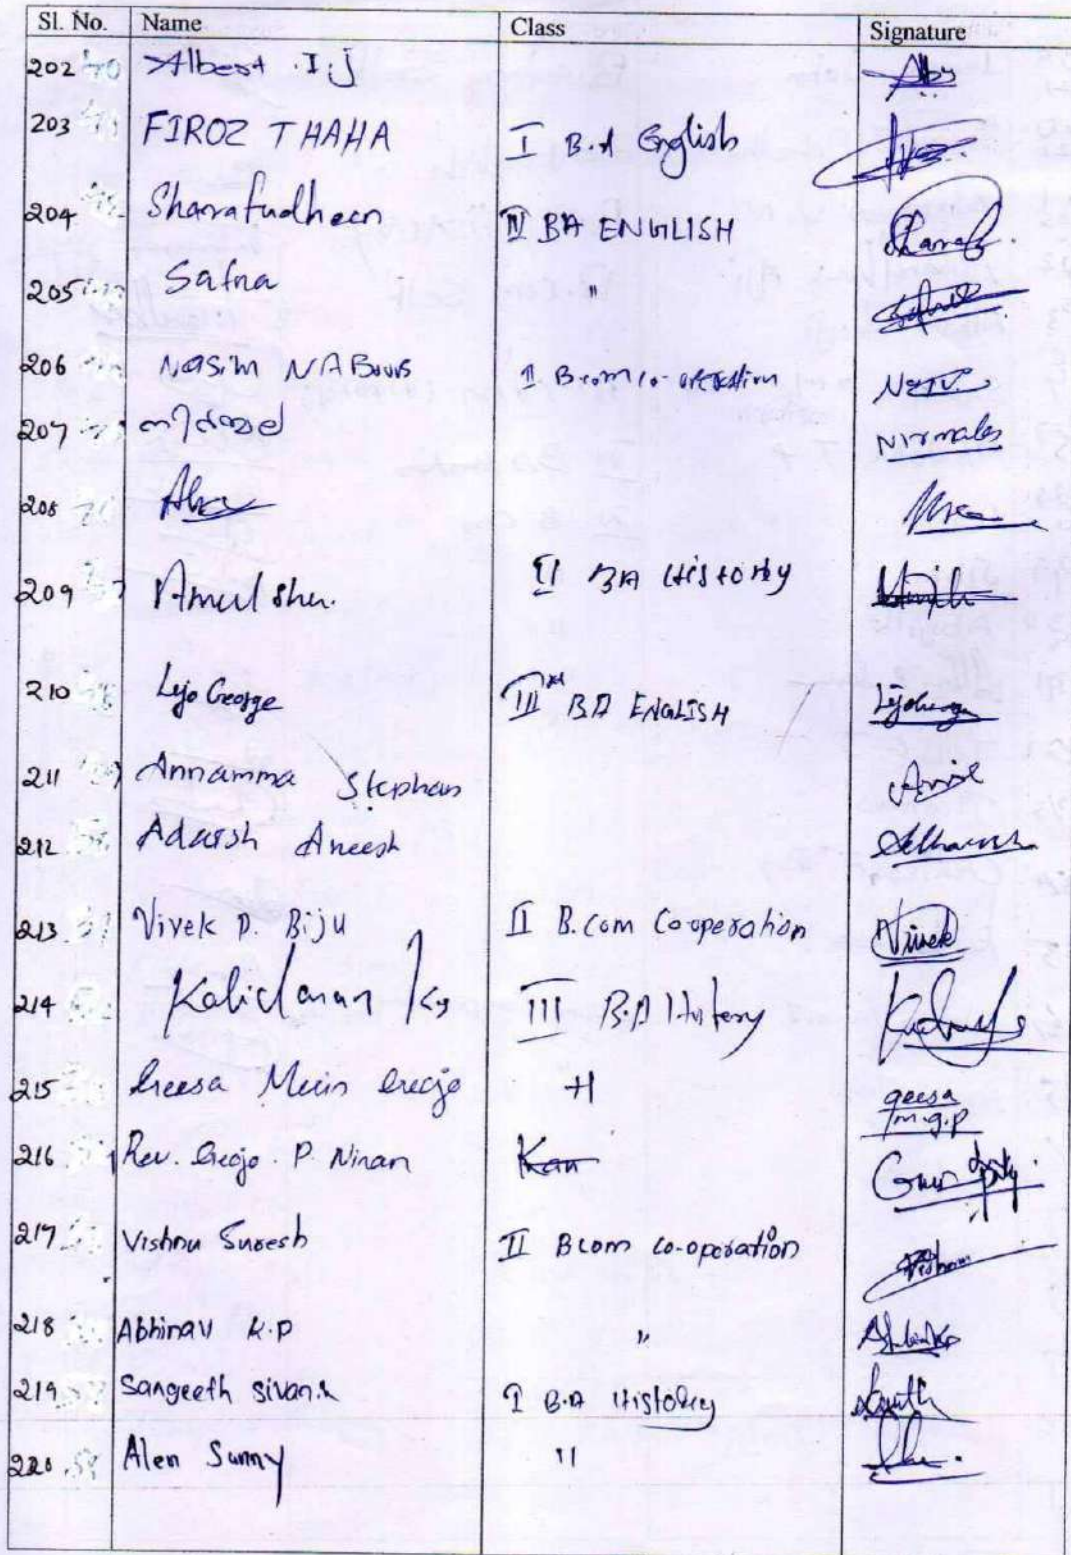 Sl. No. Name Class Signature
202 Albert I.J Aby
203 FIROZ THAHA I B.A English
204 Sharafudheen IV BA ENGLISH Sharaf
205 Safna "
206 Nasim NABOUS II B.com co-operation
207 നിർമ്മല Nirmala
208
209 Amul shu. II BA HISTORY
210 Lijo George III BA ENGLISH Lijo George
211 Annamma Stephan
212 Adarsh Aneesh
213 Vivek P. Biju II B.Com Co-operation Vivek
214 Kalidasan Kg III B.A History
215 Greesa Merin Greejo H geesa m.g.p
216 Rev. Geejo . P. Ninan Kan
217 Vishnu Suresh II Bcom co-operation Vishnu
218 Abhinav K.P "
219 Sangeeth Sivan.k I B.A History
220 Alen Sunny "